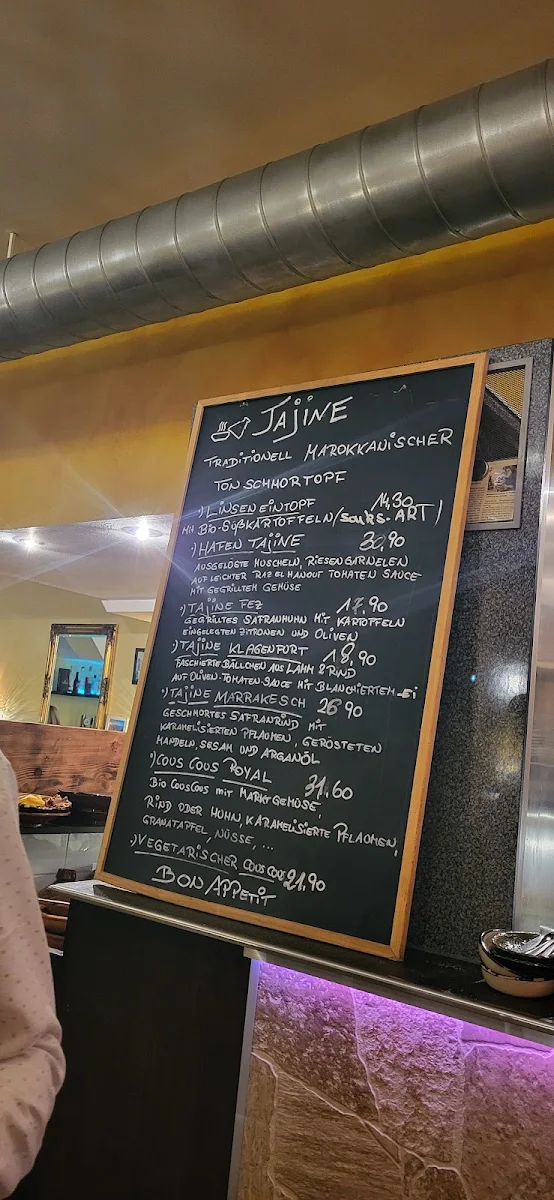 TAJINE
TRADITIONELL MAROKKANISCHER
TONSCHMORTOPF
·) LINSENEINTOPF 14,30
MIT BIO-SÜßKARTOFFELN/SOUKS-ART)
·) HAFEN TAJINE 30,90
AUSGELÖSTE MUSCHELN, RIESENGARNELEN
AUF LEICHTER RAS EL HANOUT TOMATEN SAUCE
MIT GEGRILLTEM GEMÜSE
·) TAJINE FEZ 17,90
GEGRILLTES SAFRANHUHN MIT KARTOFFELN
EINGELEGTEN ZITRONEN UND OLIVEN
·) TAJINE KLAGENFURT 18,90
FASCHIERTE BÄLLCHEN AUS LAMM & RIND
AUF OLIVEN-TOMATEN SAUCE MIT BLANCHIERTEM-EI
·) TAJINE MARRAKESCH 26,90
GESCHMORTES SAFRANRIND MIT
KARAMELISIERTEN PFLAUMEN, GERÖSTETEN
MANDELN, SESAM UND ARGANÖL
·) COUS COUS ROYAL 31.60
BIO COUSCOUS MIT MARKTGEMÜSE,
RIND ODER HUHN, KARAMELISIERTE PFLAUMEN,
GRANATAPFEL, NÜSSE, ...
·) VEGETARISCHER COUSCOUS 21.90
BON APPETIT